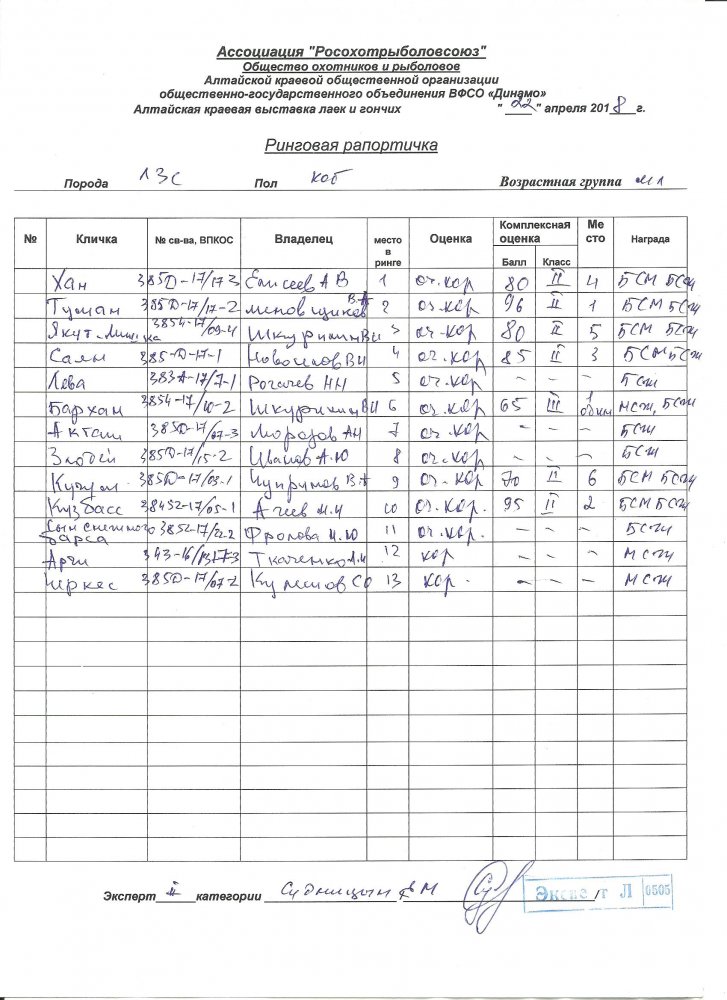 Ассоциация "Росохотрыболовсоюз"
Общество охотников и рыболовов
Алтайской краевой общественной организации
общественно-государственного объединения ВФСО «Динамо»
Алтайская краевая выставка лаек и гончих "22" апреля 2018 г.
Ринговая рапортичка
Порода ЛЗС Пол коб Возрастная группа мл
№ Кличка № св-ва, ВПКОС Владелец место в ринге Оценка Комплексная оценка Балл Класс Место Награда
Хан 385D-17/17-3 Елисеев А В 1 оч.кор 80 II 4 БСМ БСЖ
Туман 385D-17/17-2 меновщиков В.А 2 оч.кор 96 II 1 БСМ БСЖ
Якут 3854-17/09-4 Шкурихин ВИ 3 оч.кор 80 II 5 БСМ БСЖ
Саян 385-D-17-1 Новоселов ВИ 4 оч.кор 85 II 3 БСМ БСЖ
Лева 383А-17/7-1 Рогачев НН 5 оч.кор – – – БСЖ
Бархан 3854-17/10-2 Шкурихин ВИ 6 оч.кор 65 III 1 МСЖ, БСЖ
Акташ 385D-17/07-3 Морозов АН 7 оч.кор – – – БСЖ
Злодей 385D-17/15-2 Иванов А.Ю 8 оч.кор – – – БСЖ
385D-17/09-1 Чупрунов В.А 9 оч-кор 70 II 6 БСМ БСЖ
Кузбасс 38452-17/05-1 Агеев М.И 10 оч.кор. 95 II 2 БСМ БСЖ
Сын снежного барса 3852-17/22-2 Фролова И.Ю 11 оч.кор. – – – БСЖ
Арчи Ткаченко 12 кор – – – МСЖ
Черкес 385D-17/07-2 СО 13 кор. – – – МСЖ
Эксперт II категории Судницын Е М
Эксперт Л 0505